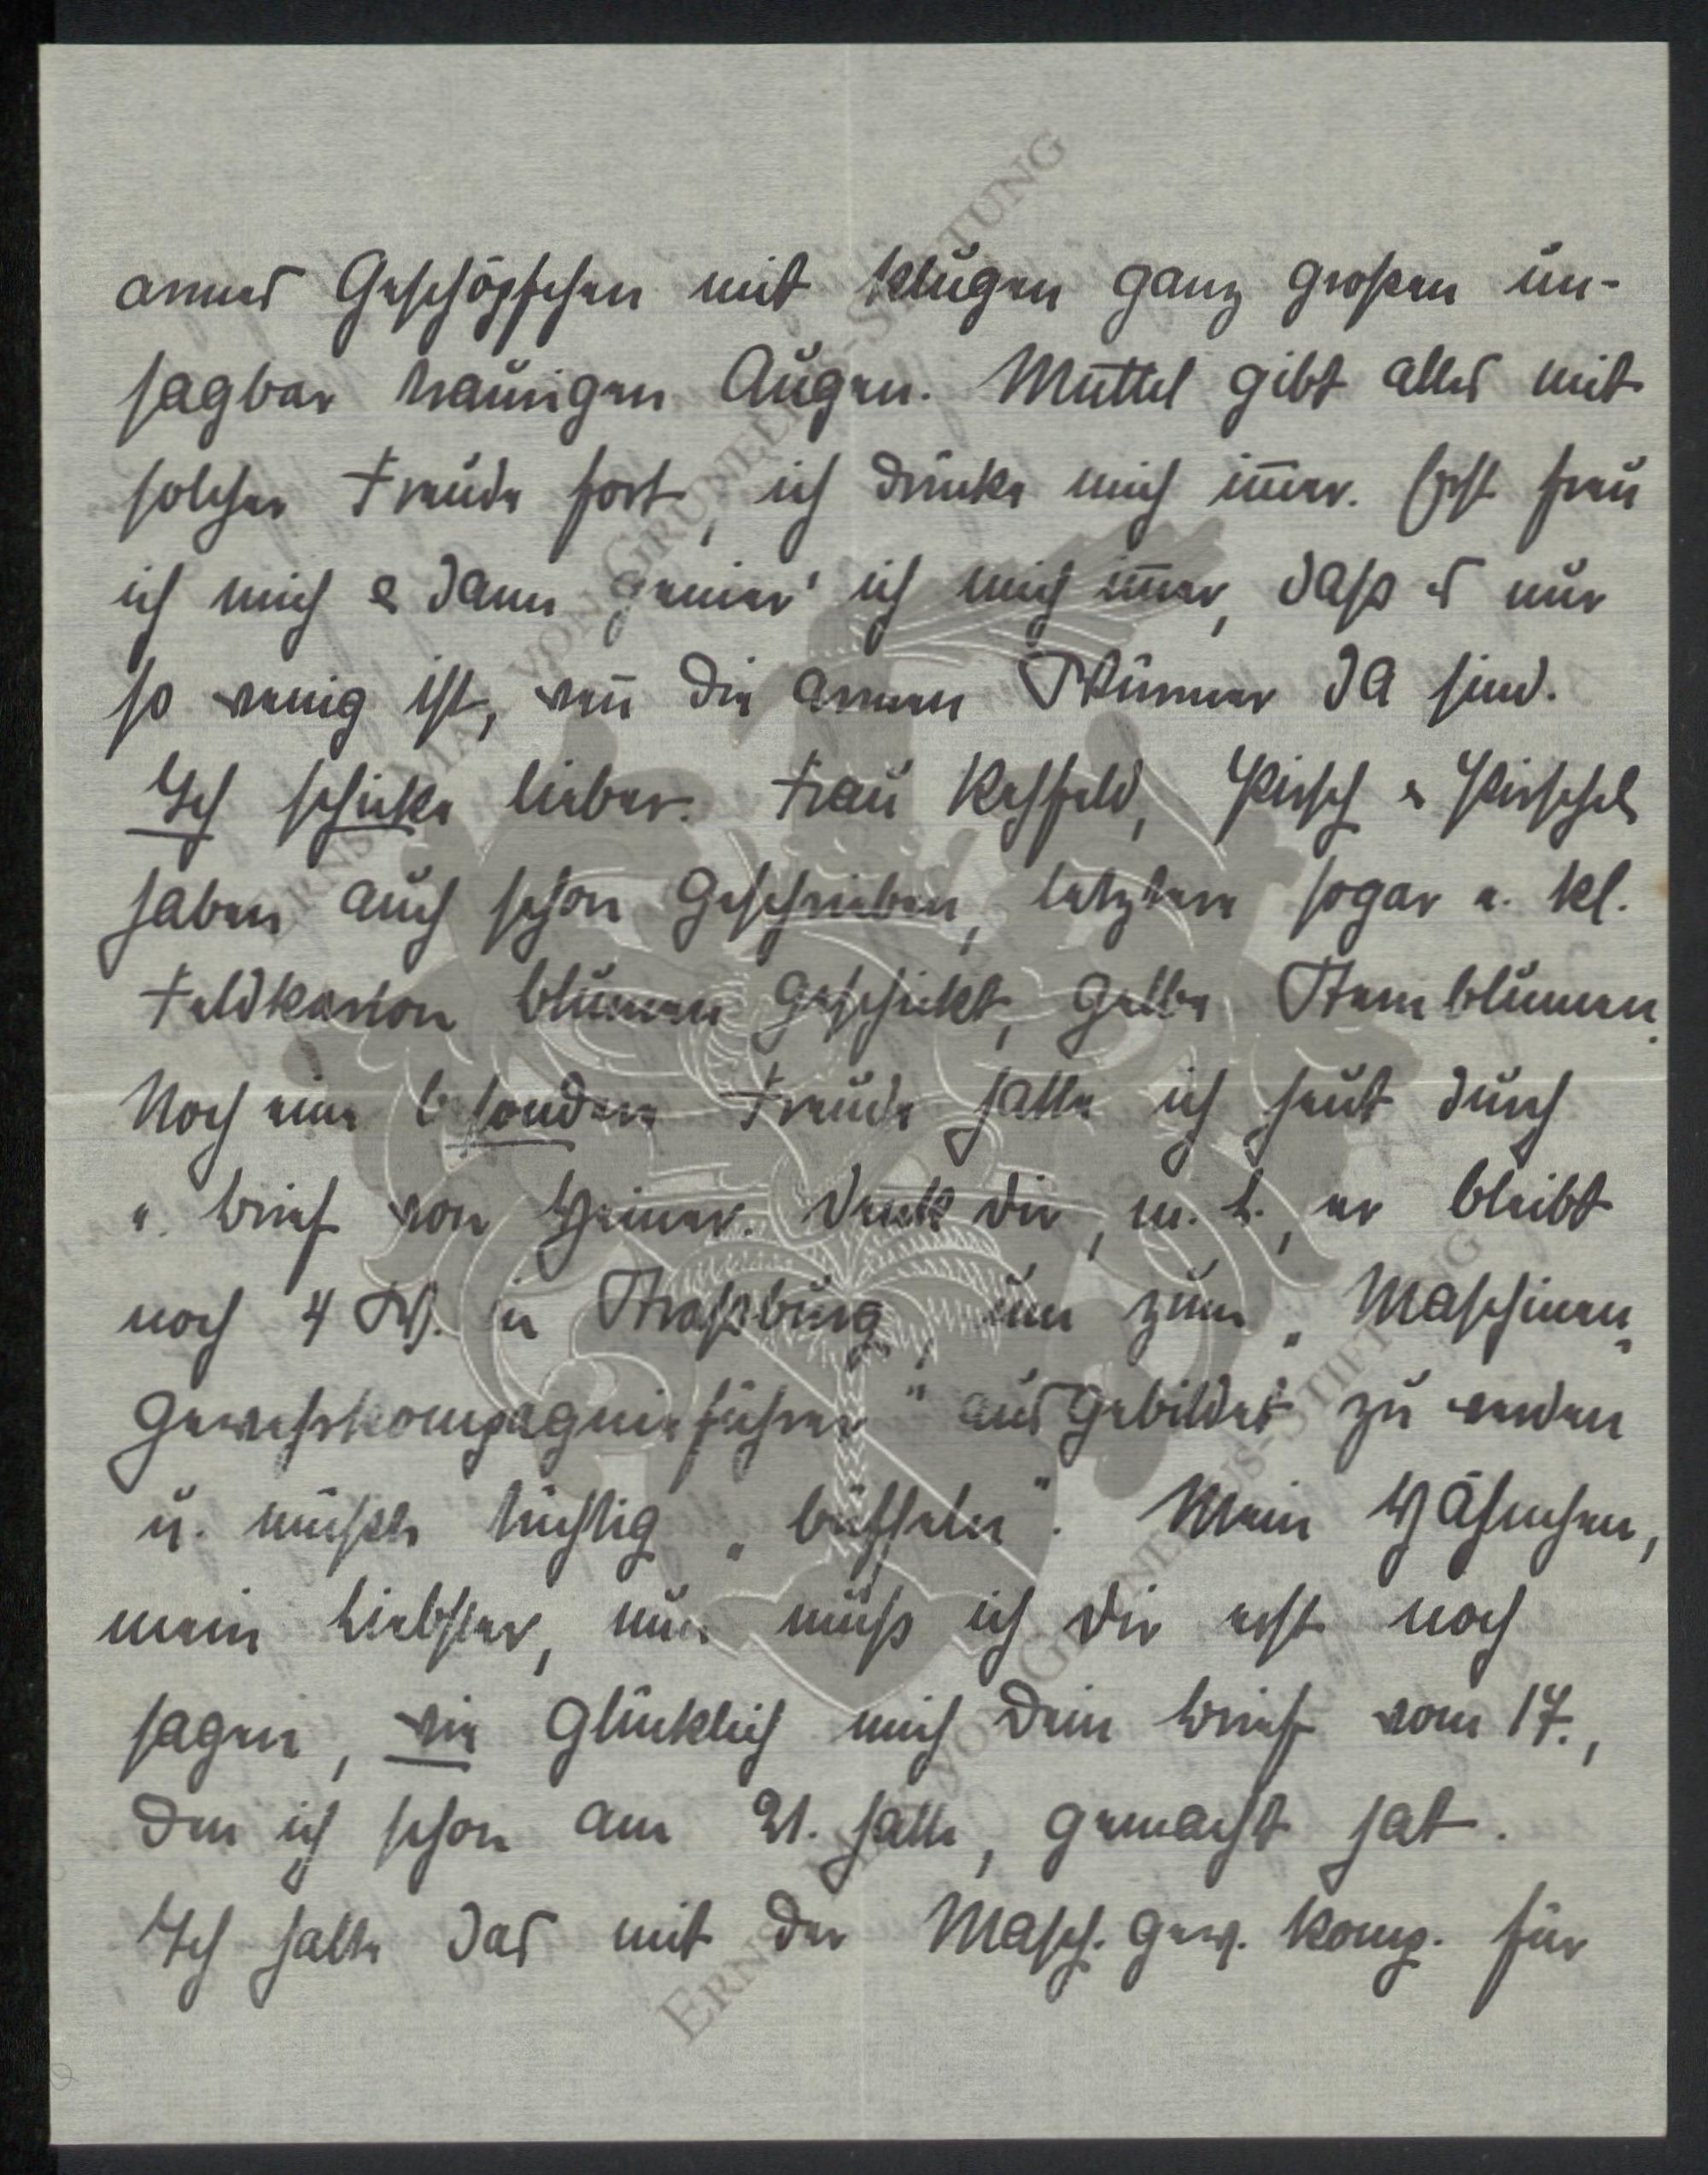 armes Geschöpfchen mit klugen ganz großen un-
sagbar traurigen Augen. Muttel gibt alles mit
solcher Freude fort, ich drücke mich im̅er. Erst freu
ich mich & dann genier' ich mich im̅er, daß es nur
so wenig ist, wen̅ die armen Würmer da sind.
Ich schicke lieber. Frau Rehfeld, Kirsch & Kirschels
haben auch schon geschrieben, letztere sogar e. kl.
Feldkarton Blumen geschickt, gelbe Sternblumen.
Noch eine besondere Freude hatte ich heut durch
e. Brief von Heiner. Denk Dir, m. L., er bleibt
noch 4 W. in Straßburg, um zum „Maschinen-
gewehrkompagnieführer" ausgebildet zu werden
u. müßte tüchtig „büffeln". Mein Hähnchen,
mein Liebster, nun muß ich Dir erst noch
sagen, wie glücklich mich Dein Brief vom 17.,
den ich schon am 21. hatte, gemacht hat.
Ich halte das mit der Masch. Gew. Komp. für
ERNST MAX VON GRUNELIUS-STIFTUNG
ERNST MAX VON GRUNELIUS-STIFTUNG